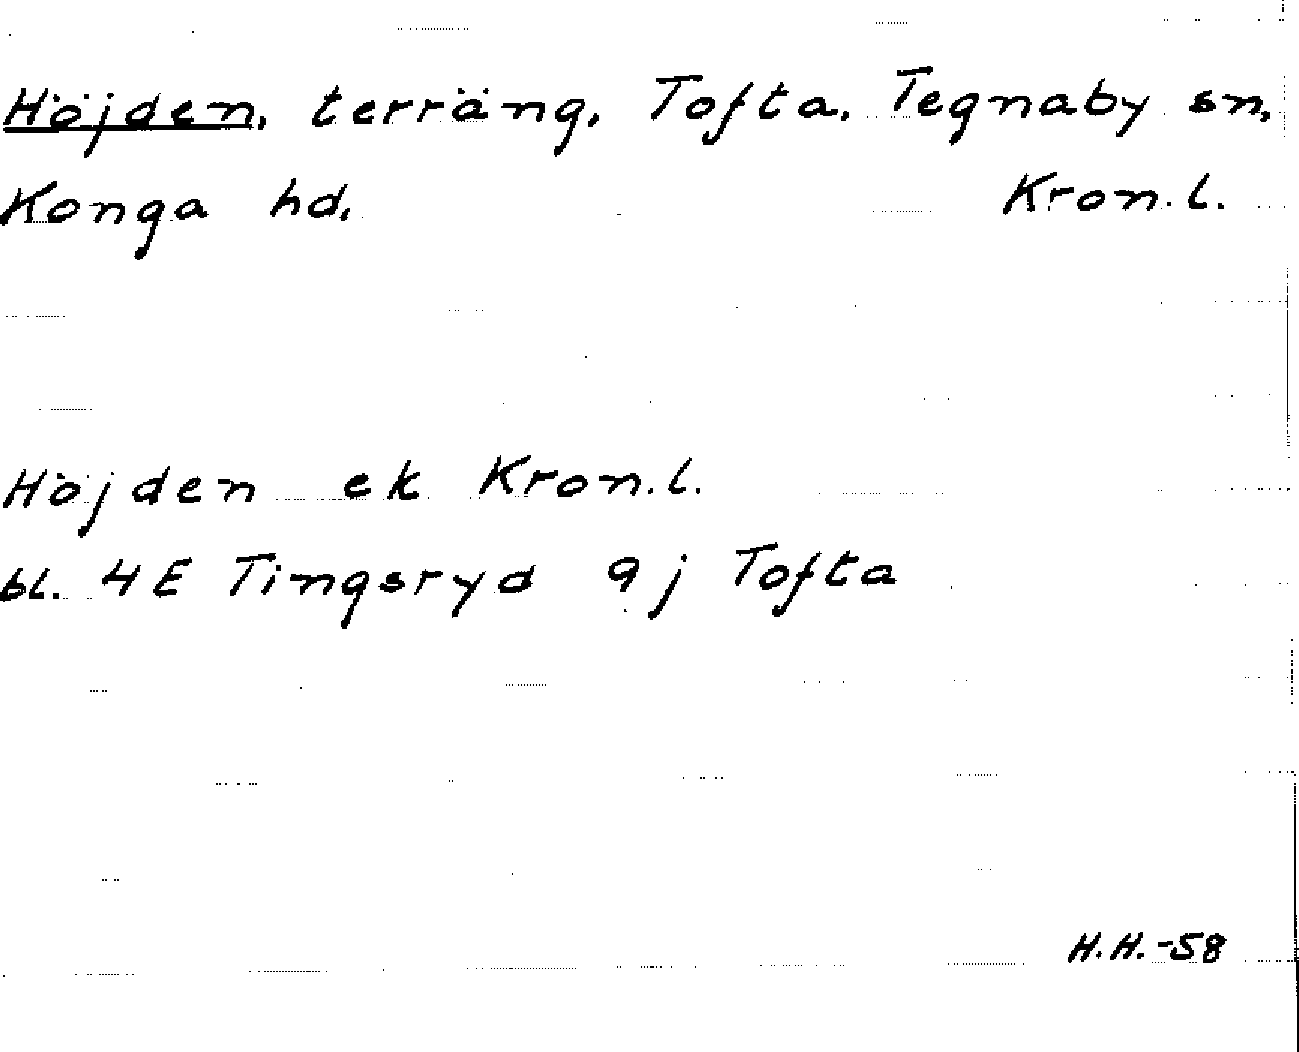 Höjden, terräng, Tofta, Tegnaby sn,
Konga hd. Kron.l.
Höjden ek Kron.l.
bl. 4E Tingsryd 9j Tofta
H.H.-58